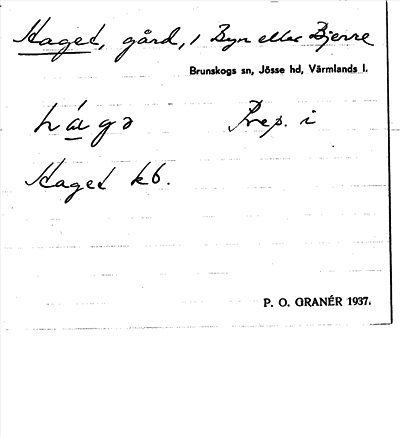 Haget, gård, i Byn eller Bjerre
Brunskogs sn, Jösse hd, Värmlands l.
hágə Prep. i
Haget kb.
P. O. GRANÉR 1937.